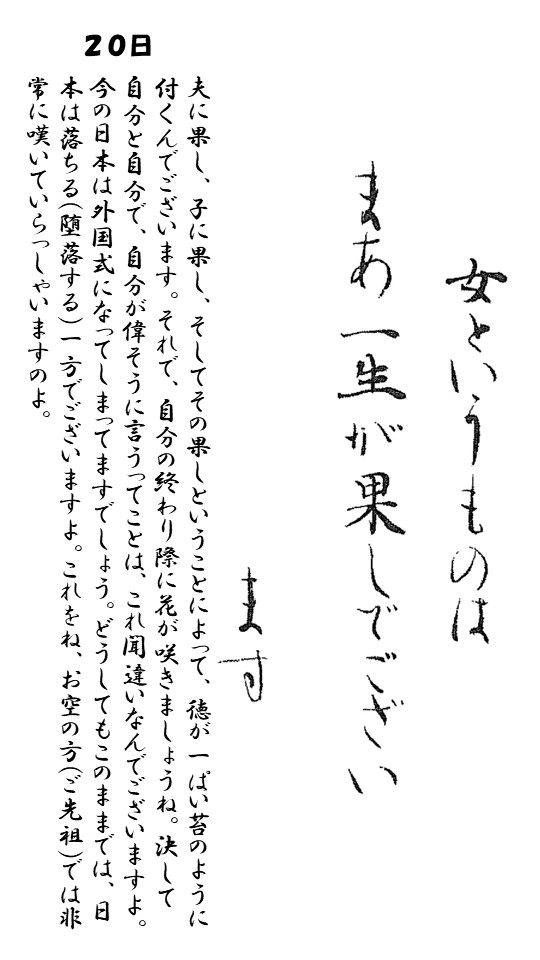 女というものは
まあ一生が果しでござい
ます
20日
夫に果し、子に果し、そしてその果しということによって、徳が一ぱい苔のように
付くんでございます。それで、自分の終わり際に花が咲きましょうね。決して
自分と自分で、自分が偉そうに言うってことは、これ聞違いなんでございますよ。
今の日本は外国式になってしまってますでしょう。どうしてもこのままでは、日
本は落ちる(堕落する)一方でございますよ。これをね、お空の方(ご先祖)では非
常に嘆いていらっしゃいますのよ。